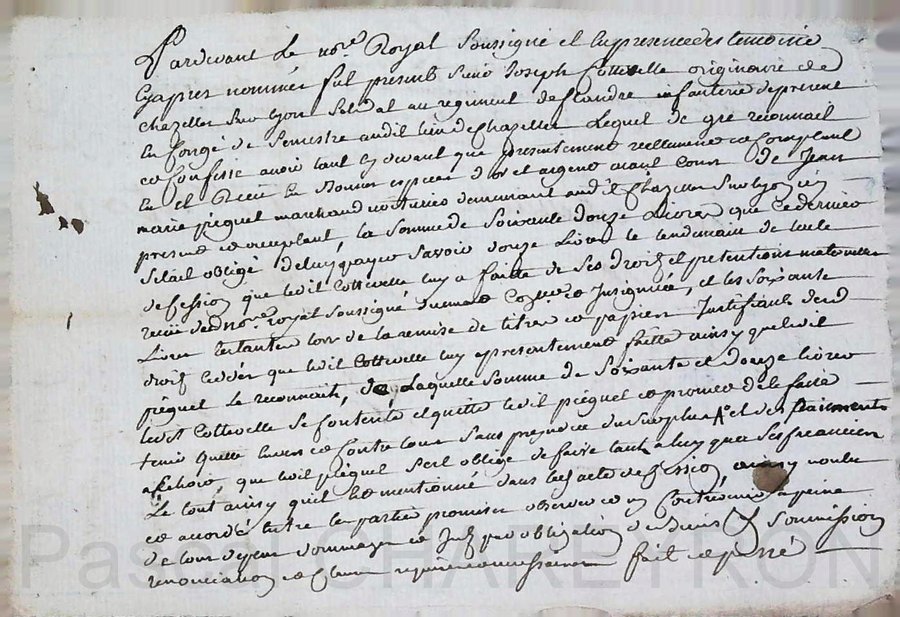 Pardevant Le nore Royal Soussigné et En presence des temoins
Cy apres nommés fut present Sieur Joseph Cottevelle originaire de
Chazelles Sur Lyon Soldat au regiment de flandre infanterie de present
En Congé de Semestre audit lieu de Chazelles Lequel de gré reconnait
et Confesse avoir tant cy devant que presentement reellement et Comptant
Eu et Recu En Bonnes especes d'or et argent aiant Cours de Jean
marie pièquel marchand demeurant audit Chazelles Sur Lyon icy
present et acceptant, la Somme de Soixante douze Livres que Ce dernier
S'etait obligé de luy payer Savoir douze Livres le lendemain de l'acte
de Cession que ledit Cottevelle luy a faitte de Ses Droits et pretentions maternelles
recue dudt nore Royal Soussigné duement Con.lée et Insinuée, et les Soixante
Livres restantes lors de la remise de titres et papiers Justificatifs desd
droits Cedés que ledit Cottevelle luy a presentement faitte ainsy que ledit
pièquel Le reconnait, de Laquelle Somme de Soixante et douze livres
ledit Cottevelle Se Contente et quitte ledit pièquel et promet de le faire
tenir quitte Envers et Contre tous Sans prejudice du Surplus et des paiements
a Echoir, que ledit pièquel S'est obligé de faire tant a luy qu'a Ses Creanciers
Le tout ainsy qu'il Est mentionné dans led acte de Cession, ainsy voulu
et accordé Entre les parties promises observer et ny Contrevenir a peine
de tous depens dommages et Int. par obligation de Biens Soumission
renonciation et Clauses requises et necessaires fait et passé
Pascal CHAREYRON